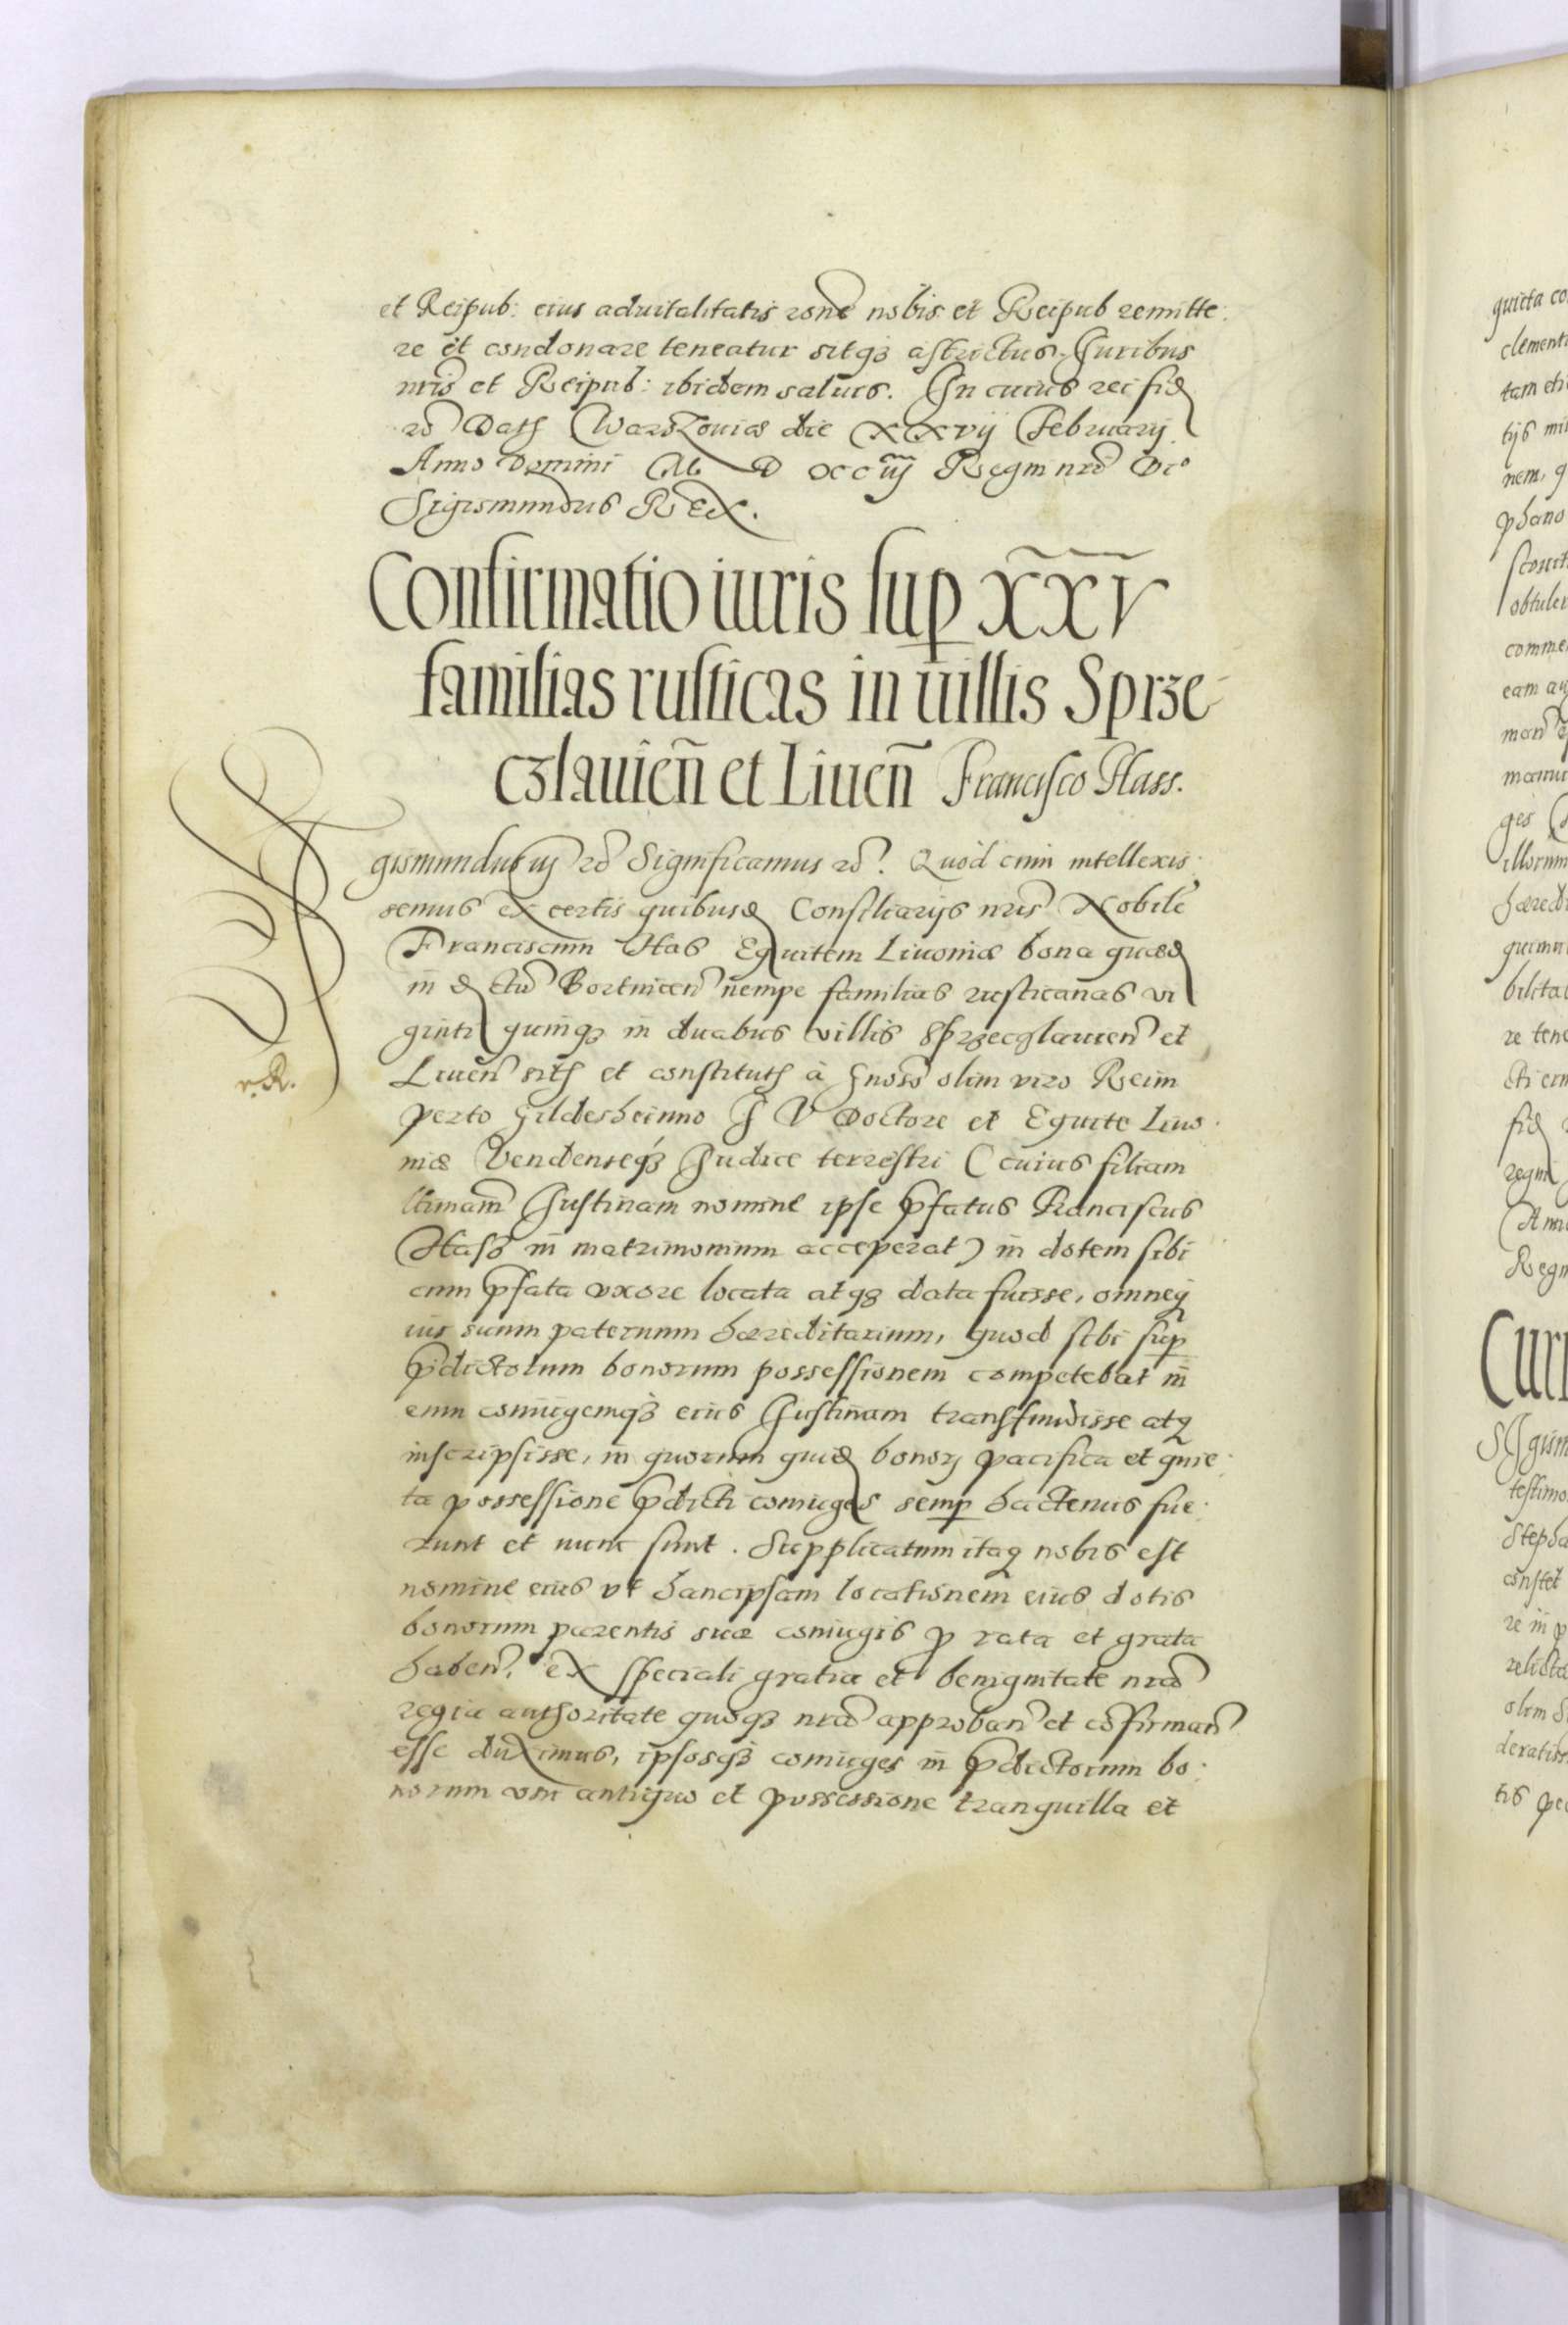 et Reipub: eius aduitalitatis rone nobis et Reipub remitte
re et condonare teneatur sitqꝫ astrictus. Iuribus
nris et Reipub: ibidem saluis. In cuius rei fid
rc Dat Warszouiæ die XXvij February
Anno Domini M D XCiij Regni nri
Sigismundus REX.
Confirmatio iuris sup XXV
familias rusticas in uillis Sprze
czlauień et Liueñ Francisco Hass.
gismundus iij rc Significamus rc. Quod cum intellexis
semus ex certis quibusd Consiliarijs nris Nobile
Franciscum Has Equitem Liuoniæ bona quæd
in d ctu Bortnicen nempe familias rusticanas vi
ginti quinqꝫ in duabus villis Sprzeczlauien et
Liuen sit et constitut à gnoso olim viro Reim
perto Hildesheimo I V Doctore et Equite Liuo
niæ Vendensiqꝫ Iudice terrestri (cuius filiam
Iustinam nomine ipse pfatus Franciscus
Hass in matrimonium acceperat) in dotem sibi
cum pfata vxore locata atqꝫ data fuisse, omneq
ius suum paternum hæreditarium, quod sibi sup
pdictorum bonorum possessionem competebat in
eum coniugemqꝫ eius Iustinam transfudisse atq
inscripsisse, in quorum quid bonorꝫ pacifica et quie
ta possessione pdicti coniuges semp hactenus fue
runt et nunc sunt. Supplicatum itaq nobis est
nomine eius vt hancipsam locationem eius dotis
bonorum parentis suæ coniugis p rata et grata
haben, ex speciali gratia et benignitate nra
regia authoritate quoqꝫ nra approban et cofirman
esse duximus, ipsosqꝫ coniuges in pdictorum bo
norum vsu antiquo et possessione tranquilla et
r. R.
quieta co
clementi
tam eti
tijs mi
nem, q
phano
obtuler
comme
eam au
ges
illorum
hæredi
bilita
re tene
fid
regni
Regn
Curi
gism
testimo
Stepha
constet
re in p
relicta
olim S
tis pe